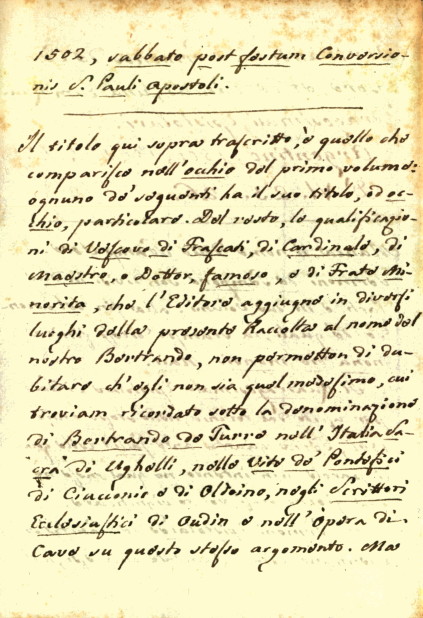 1502, sabbato post festum Conversio-
nis S. Pauli Apostoli.
Il titolo qui sopra trascritto, è quello che
comparisce nell'occhio del primo volume:
ognuno de' seguenti ha il suo titolo, ed oc-
chio, particolare. Del resto, le qualificazio-
ni di Vescovo di Frascati, di Cardinale, di
Maestro, o Dottor, famoso, e di Frate Mi-
norita, che l'Editore aggiugne in diversi
luoghi della presente Raccolta al nome del
nostro Bertrando, non permetton di du-
bitare ch'egli non sia quel medesimo, cui
troviam ricordato sotto la denominazione
di Bertrando de Turre nell'Italia Sa-
cra di Ughelli, nelle Vite de' Pontefici
di Ciacconio e di Oldoino, negli Scrittori
Ecclesiastici di Oudin e nell'Opera di
Cave su questo stesso argomento. Ma